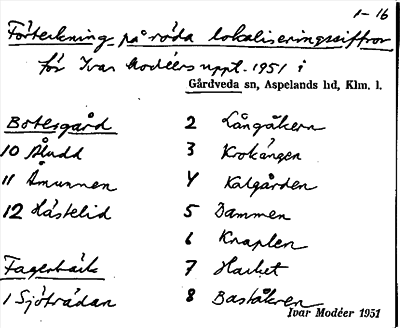 1-16
Förteckning på röda lokaliseringssiffror
för Ivar Modéers uppt. 1951 i
Gårdveda sn, Aspelands hd, Klm. l.
Botesgård
10 Åludd
11 Åmunnen
12 Hästelid
Fagerbäck
1 Sjöträdan
2 Långåkern
3 Krokängen
4 Kalgården
5 Dammen
6 Knaplen
7 Harket
8 Baståkren
Ivar Modéer 1951